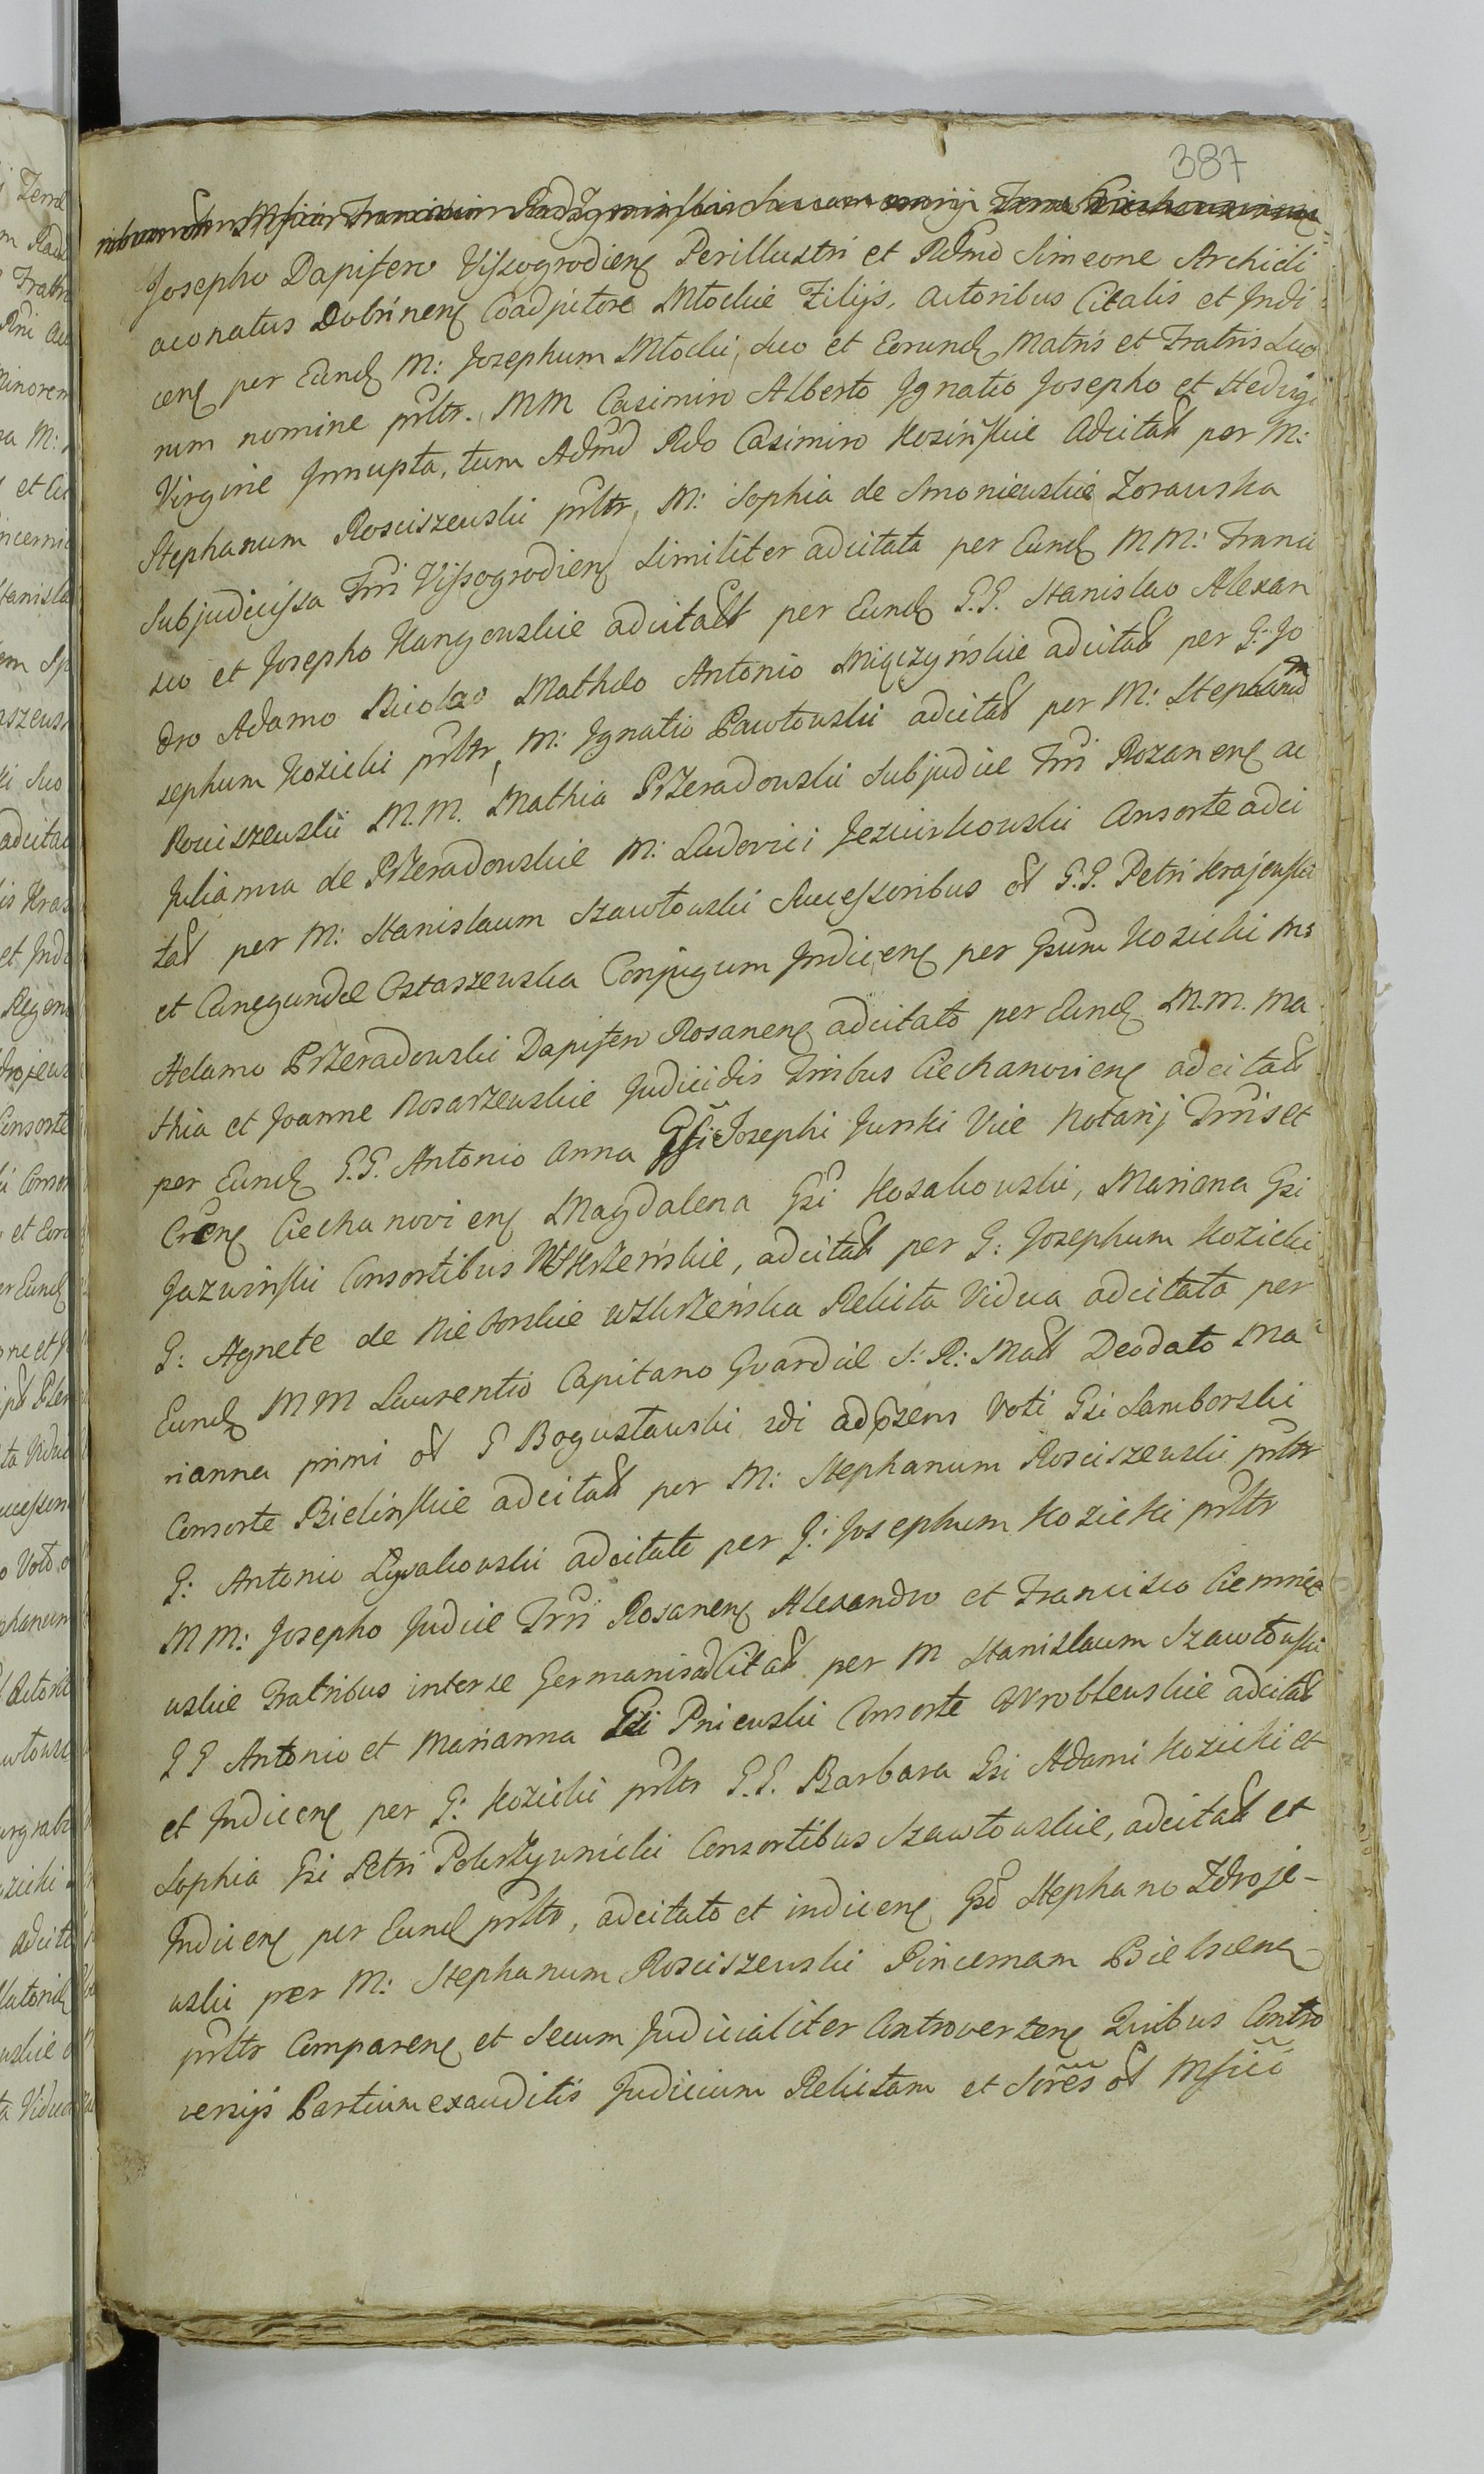 387
Josepho Dapifero Vissogrodien Perillustri et Rdmo Simeone Archidi
aconatus Dobrinen Coadjutore Młockie Filijs, Actoribus Citatis et Indi
cen per Eund M: Josephum Młocki, suo et Eorund Matris et Fratris Suo
rum nomine prltr. MM Casimiro Alberto Ignatio Josepho et Hedvigi
Virgine Innupta, tum Admd Rdo Casimiro Kosińskie Adcitat per M:
Stephanum Rosciszewski prltr, M: Sophia de Smoniewskie Zorawska
Subjudicissa Trri Vissogrodien Similiter adcitata per Eund MM: Franci
sco et Josepho Kanigowskie adcitatt per Eund G.G. Stanislao Alexan
dro Adamo Nicolao Matheo Antonio Miączyńskie adcitat per G: Jo
sephum Kozicki prltr, M: Ignatio Pawłowski adcitat per M: Stephanum
Rosciszewski M.M. Mathia Przeradowski Subjudice Trri Rozanen ac
Julianna de Przeradowskie M: Ludovici Jezierkowski Consorte adci
tat per M: Stanislaum Szawłowski Successoribus ol G.G. Petri Krajewski
et Cunegundae Ostaszewska Conjugum Indicen per Gsum Kozicki Ms
Adamo Przeradowski Dapifero Rosanen adcitato per Eund M.M. Ma
thia et Joanne Kosarzewskie Judicidis Trribus Ciechanovien adcitat
per Eund G.G. Antonio Anna Gsi Josephi Junki Vice Notarij Trris et
Cren Ciechanovien Magdalena Gsi Kosakowski, Mariana Gsi
Jazwinski Consortibus Wskrzeńskie, adcitat per G: Josephum Kozicki
G: Agnete de Nieborskie Wskrzeńska Relicta Vidua adcitata per
Eund MM Laurentio Capitano Gvardiae S: R: Matt Deodato Ma
rianna primi ol G Bogusławski 2di adpsens Voti Gsi Lamborski
Consorte Bielinskie adcitat per M: Stephanum Rosciszewski prltr
G: Antonio Łysakowski adcitato per G: Josephum Kozicki prltr
MM: Josepho Judice Trri Rosanen Alexandro et Francisco Ciemnie
wskie Fratribus interse Germanis adcitat per M Stanislaum Szawłowski
G G Antonio et Marianna Gsi Pniewski Consorte Wroblewskie adcitat
et Indicen per G: Kozicki prltr G.G. Barbara Gsi Adami Kozicki et
Sophia Gsi Petri Pokrzywnicki Consortibus Szawłowskie, adcitat et
Indicen per Eund prltr, adcitato et indicen Gso Stephano Zdroje-
wski per M: Stephanum Rosciszewski Pincernam Bielscen
prltr Comparen et Secum Judicialiter Controverten Quibus Contro
versijs Partium exauditis Judicium Relictam et Sores ol Msici